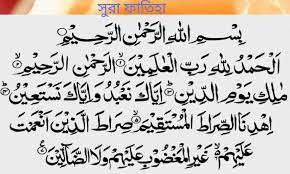 সুরা ফাতিহা
بِسْمِ اللهِ الرَّحْمٰنِ الرَّحِيْمِ
اَلْحَمْدُ لِلّٰهِ رَبِّ الْعٰلَمِيْنَ ۙ الرَّحْمٰنِ الرَّحِيْمِ ۙ
مٰلِكِ يَوْمِ الدِّيْنِ ؕ اِيَّاكَ نَعْبُدُ وَاِيَّاكَ نَسْتَعِيْنُ ؕ
اِهْدِنَا الصِّرَاطَ الْمُسْتَقِيْمَ ۙ صِرَاطَ الَّذِيْنَ اَنْعَمْتَ
عَلَيْهِمْ ۙ غَيْرِ الْمَغْضُوْبِ عَلَيْهِمْ وَلَا الضَّآلِّيْنَ